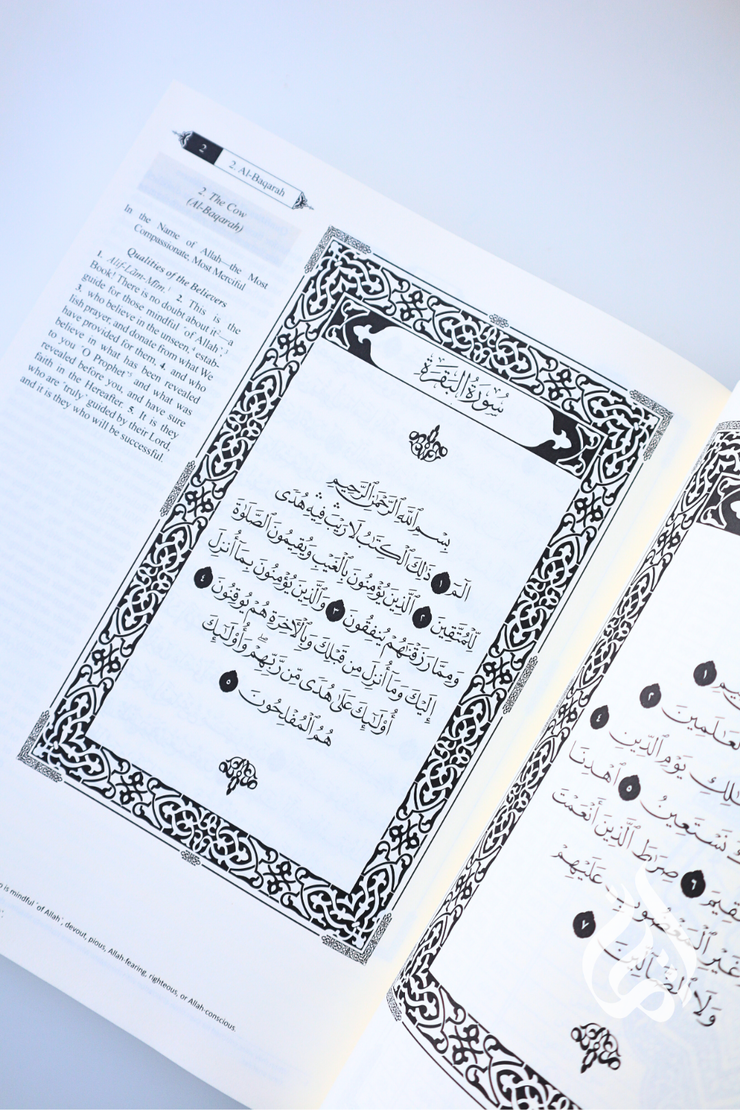 2
2. Al-Baqarah
2. The Cow
(Al-Baqarah)
In the Name of Allah—the Most
Compassionate, Most Merciful
Qualities of the Believers
1. Alif-Lãm-Mĩm. 2. This is the
Book! There is no doubt about it—a
guide for those mindful ˹of Allah˺,
3. who believe in the unseen, estab-
lish prayer, and donate from what We
have provided for them, 4. and who
believe in what has been revealed
to you ˹O Prophet˺ and what was
revealed before you, and have sure
faith in the Hereafter. 5. It is they
who are ˹truly˺ guided by their Lord,
and it is they who will be successful.
سُورَةُ الْبَقَرَةِ
بِسْمِ ٱللَّهِ ٱلرَّحْمَٰنِ ٱلرَّحِيمِ
الٓمٓ ١ ذَٰلِكَ ٱلْكِتَٰبُ لَا رَيْبَ ۛ فِيهِ ۛ هُدًى
لِّلْمُتَّقِينَ ٢ ٱلَّذِينَ يُؤْمِنُونَ بِٱلْغَيْبِ وَيُقِيمُونَ ٱلصَّلَوٰةَ
وَمِمَّا رَزَقْنَٰهُمْ يُنفِقُونَ ٣ وَٱلَّذِينَ يُؤْمِنُونَ بِمَآ أُنزِلَ
إِلَيْكَ وَمَآ أُنزِلَ مِن قَبْلِكَ وَبِٱلْـَٔاخِرَةِ هُمْ يُوقِنُونَ ٤
أُو۟لَٰٓئِكَ عَلَىٰ هُدًى مِّن رَّبِّهِمْ ۖ وَأُو۟لَٰٓئِكَ
هُمُ ٱلْمُفْلِحُونَ ٥
is mindful ˹of Allah˺, devout, pious, Allah fearing, righteous, or Allah conscious.
١
ٱلْعَٰلَمِينَ ٢
مَٰلِكِ يَوْمِ ٱلدِّينِ ٤
نَسْتَعِينُ ٥ ٱهْدِنَا
صِرَٰطَ ٱلَّذِينَ أَنْعَمْتَ
٦
عَلَيْهِمْ
غَيْرِ ٱلْمَغْضُوبِ
وَلَا ٱلضَّآلِّينَ ٧